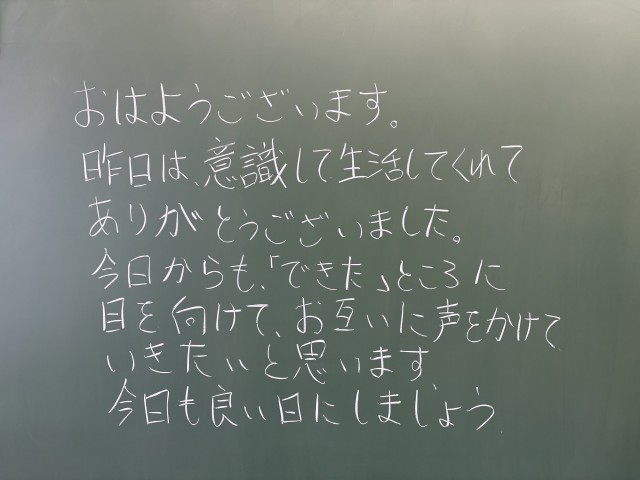 おはようございます。
昨日は、意識して生活してくれて
ありがとうございました。
今日からも、「できた」ところに
目を向けて、お互いに声をかけて
いきたいと思います
今日も良い日にしましょう